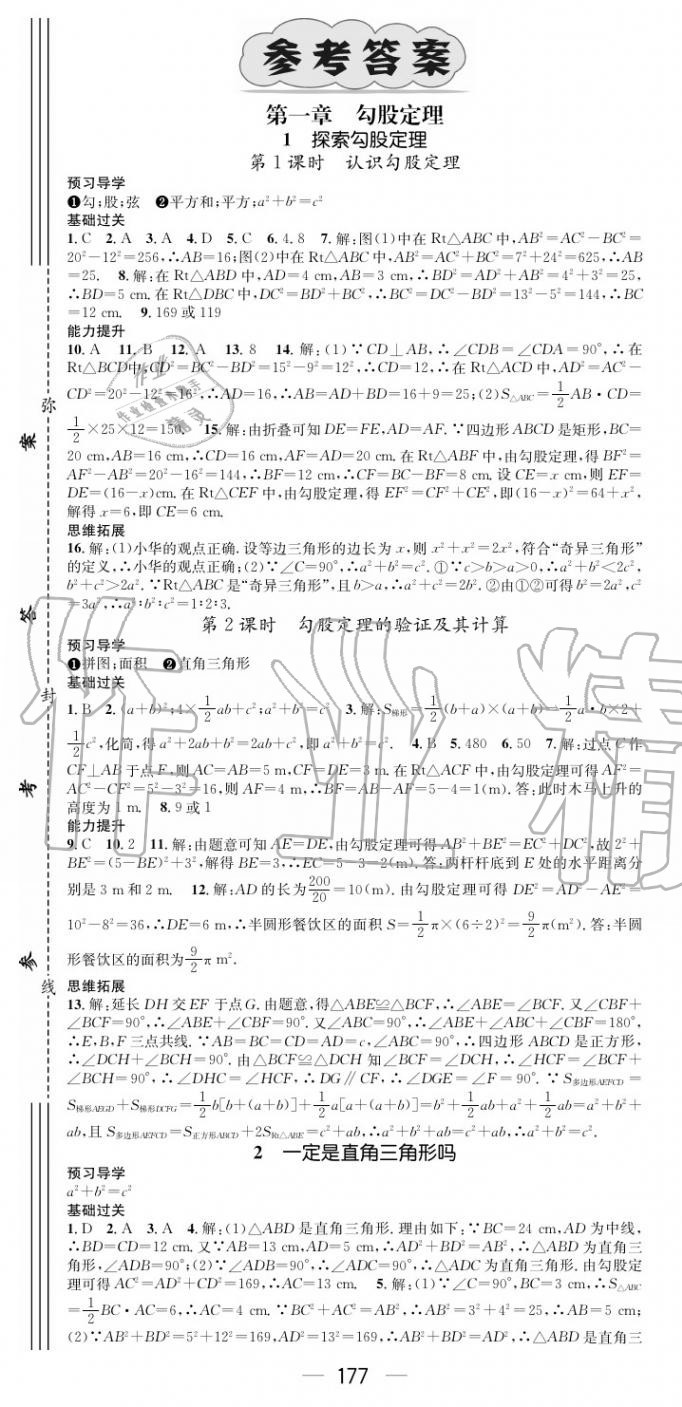 参考答案
第一章 勾股定理
1 探索勾股定理
第1课时 认识勾股定理
预习导学
❶勾;股;弦 ❷平方和;平方;a²+b²=c²
基础过关
1.C 2.A 3.A 4.D 5.C 6.4.8 7.解:图(1)中在Rt△ABC中,AB²=AC²-BC²=
20²-12²=256,∴AB=16;图(2)中在Rt△ABC中,AB²=AC²+BC²=7²+24²=625,∴AB
=25. 8.解:在Rt△ABD中,AD=4 cm,AB=3 cm,∴BD²=AD²+AB²=4²+3²=25,
∴BD=5 cm.在Rt△DBC中,DC²=BD²+BC²,∴BC²=DC²-BD²=13²-5²=144,∴BC
=12 cm. 9.169或119
能力提升
10.A 11.B 12.A 13.8 14.解:(1)∵CD⊥AB,∴∠CDB=∠CDA=90°,∴在
Rt△BCD中,CD²=BC²-BD²=15²-9²=12²,∴CD=12,∴在Rt△ACD中,AD²=AC²-
CD²=20²-12²=16²,∴AD=16,∴AB=AD+BD=16+9=25;(2)S△ABC=1/2AB·CD=
1/2×25×12=150. 15.解:由折叠可知DE=FE,AD=AF.∵四边形ABCD是矩形,BC=
20 cm,AB=16 cm,∴CD=16 cm,AF=AD=20 cm.在Rt△ABF中,由勾股定理,得BF²=
AF²-AB²=20²-16²=144,∴BF=12 cm,∴CF=BC-BF=8 cm.设CE=x cm,则EF=
DE=(16-x)cm.在Rt△CEF中,由勾股定理,得EF²=CF²+CE²,即(16-x)²=64+x²,
解得x=6,即CE=6 cm.
思维拓展
16.解:(1)小华的观点正确.设等边三角形的边长为x,则x²+x²=2x²,符合“奇异三角形”
的定义,∴小华的观点正确;(2)∵∠C=90°,∴a²+b²=c².①∵c>b>a>0,∴a²+b²<2c²,
b²+c²>2a².∵Rt△ABC是“奇异三角形”,且b>a,∴a²+c²=2b².②由①②可得b²=2a²,c²
=3a²,∴a²∶b²∶c²=1∶2∶3.
第2课时 勾股定理的验证及其计算
预习导学
❶拼图;面积 ❷直角三角形
基础过关
1.B 2.(a+b)²;4×1/2ab+c²;a²+b²=c² 3.解:S梯形=1/2(b+a)×(a+b)=1/2a·b×2+
1/2c²,化简,得a²+2ab+b²=2ab+c²,即a²+b²=c². 4.B 5.480 6.50 7.解:过点C作
CF⊥AB于点F,则AC=AB=5 m,CF=DE=3 m.在Rt△ACF中,由勾股定理可得AF²=
AC²-CF²=5²-3²=16,则AF=4 m,∴BF=AB-AF=5-4=1(m).答:此时木马上升的
高度为1 m. 8.9或1
能力提升
9.C 10.2 11.解:由题意可知AE=DE,由勾股定理可得AB²+BE²=EC²+DC²,故2²+
BE²=(5-BE)²+3²,解得BE=3,∴EC=5-3=2(m).答:两杆杆底到E处的水平距离分
别是3 m和2 m. 12.解:AD的长为200/20=10(m).由勾股定理可得DE²=AD²-AE²=
10²-8²=36,∴DE=6 m,∴半圆形餐饮区的面积S=1/2π×(6÷2)²=9/2π(m²).答:半圆
形餐饮区的面积为9/2π m².
思维拓展
13.解:延长DH交EF于点G.由题意,得△ABE≌△BCF,∴∠ABE=∠BCF.又∠CBF+
∠BCF=90°,∴∠ABE+∠CBF=90°.又∠ABC=90°,∴∠ABE+∠ABC+∠CBF=180°,
∴E,B,F三点共线.∵AB=BC=CD=AD=c,∠ABC=90°,∴四边形ABCD是正方形,
∴∠DCH+∠BCH=90°.由△BCF≌△DCH知∠BCF=∠DCH,∴∠HCF=∠BCF+
∠BCH=90°,∴∠DHC=∠HCF,∴DG∥CF,∴∠DGE=∠F=90°.∵S多边形AEFCD=
S梯形AEGD+S梯形DCFG=1/2b[b+(a+b)]+1/2a[a+(a+b)]=b²+1/2ab+a²+1/2ab=a²+b²+
ab,且S多边形AEFCD=S正方形ABCD+2SRt△ABE=c²+ab,∴a²+b²+ab=c²+ab,∴a²+b²=c².
2 一定是直角三角形吗
预习导学
a²+b²=c²
基础过关
1.D 2.A 3.A 4.解:(1)△ABD是直角三角形.理由如下:∵BC=24 cm,AD为中线,
∴BD=CD=12 cm.又∵AB=13 cm,AD=5 cm,∴AD²+BD²=AB²,∴△ABD为直角三
角形,∠ADB=90°;(2)∵∠ADB=90°,∴∠ADC=90°,∴△ADC为直角三角形.由勾股定
理可得AC²=AD²+CD²=169,∴AC=13 cm. 5.解:(1)∵∠C=90°,BC=3 cm,∴S△ABC
=1/2BC·AC=6,∴AC=4 cm.∵BC²+AC²=AB²,∴AB²=3²+4²=25,∴AB=5 cm;
(2)∵AB²+BD²=5²+12²=169,AD²=13²=169,∴AB²+BD²=AD²,∴△ABD是直角三
177
弥
封
线
参
考
答
案
作业精